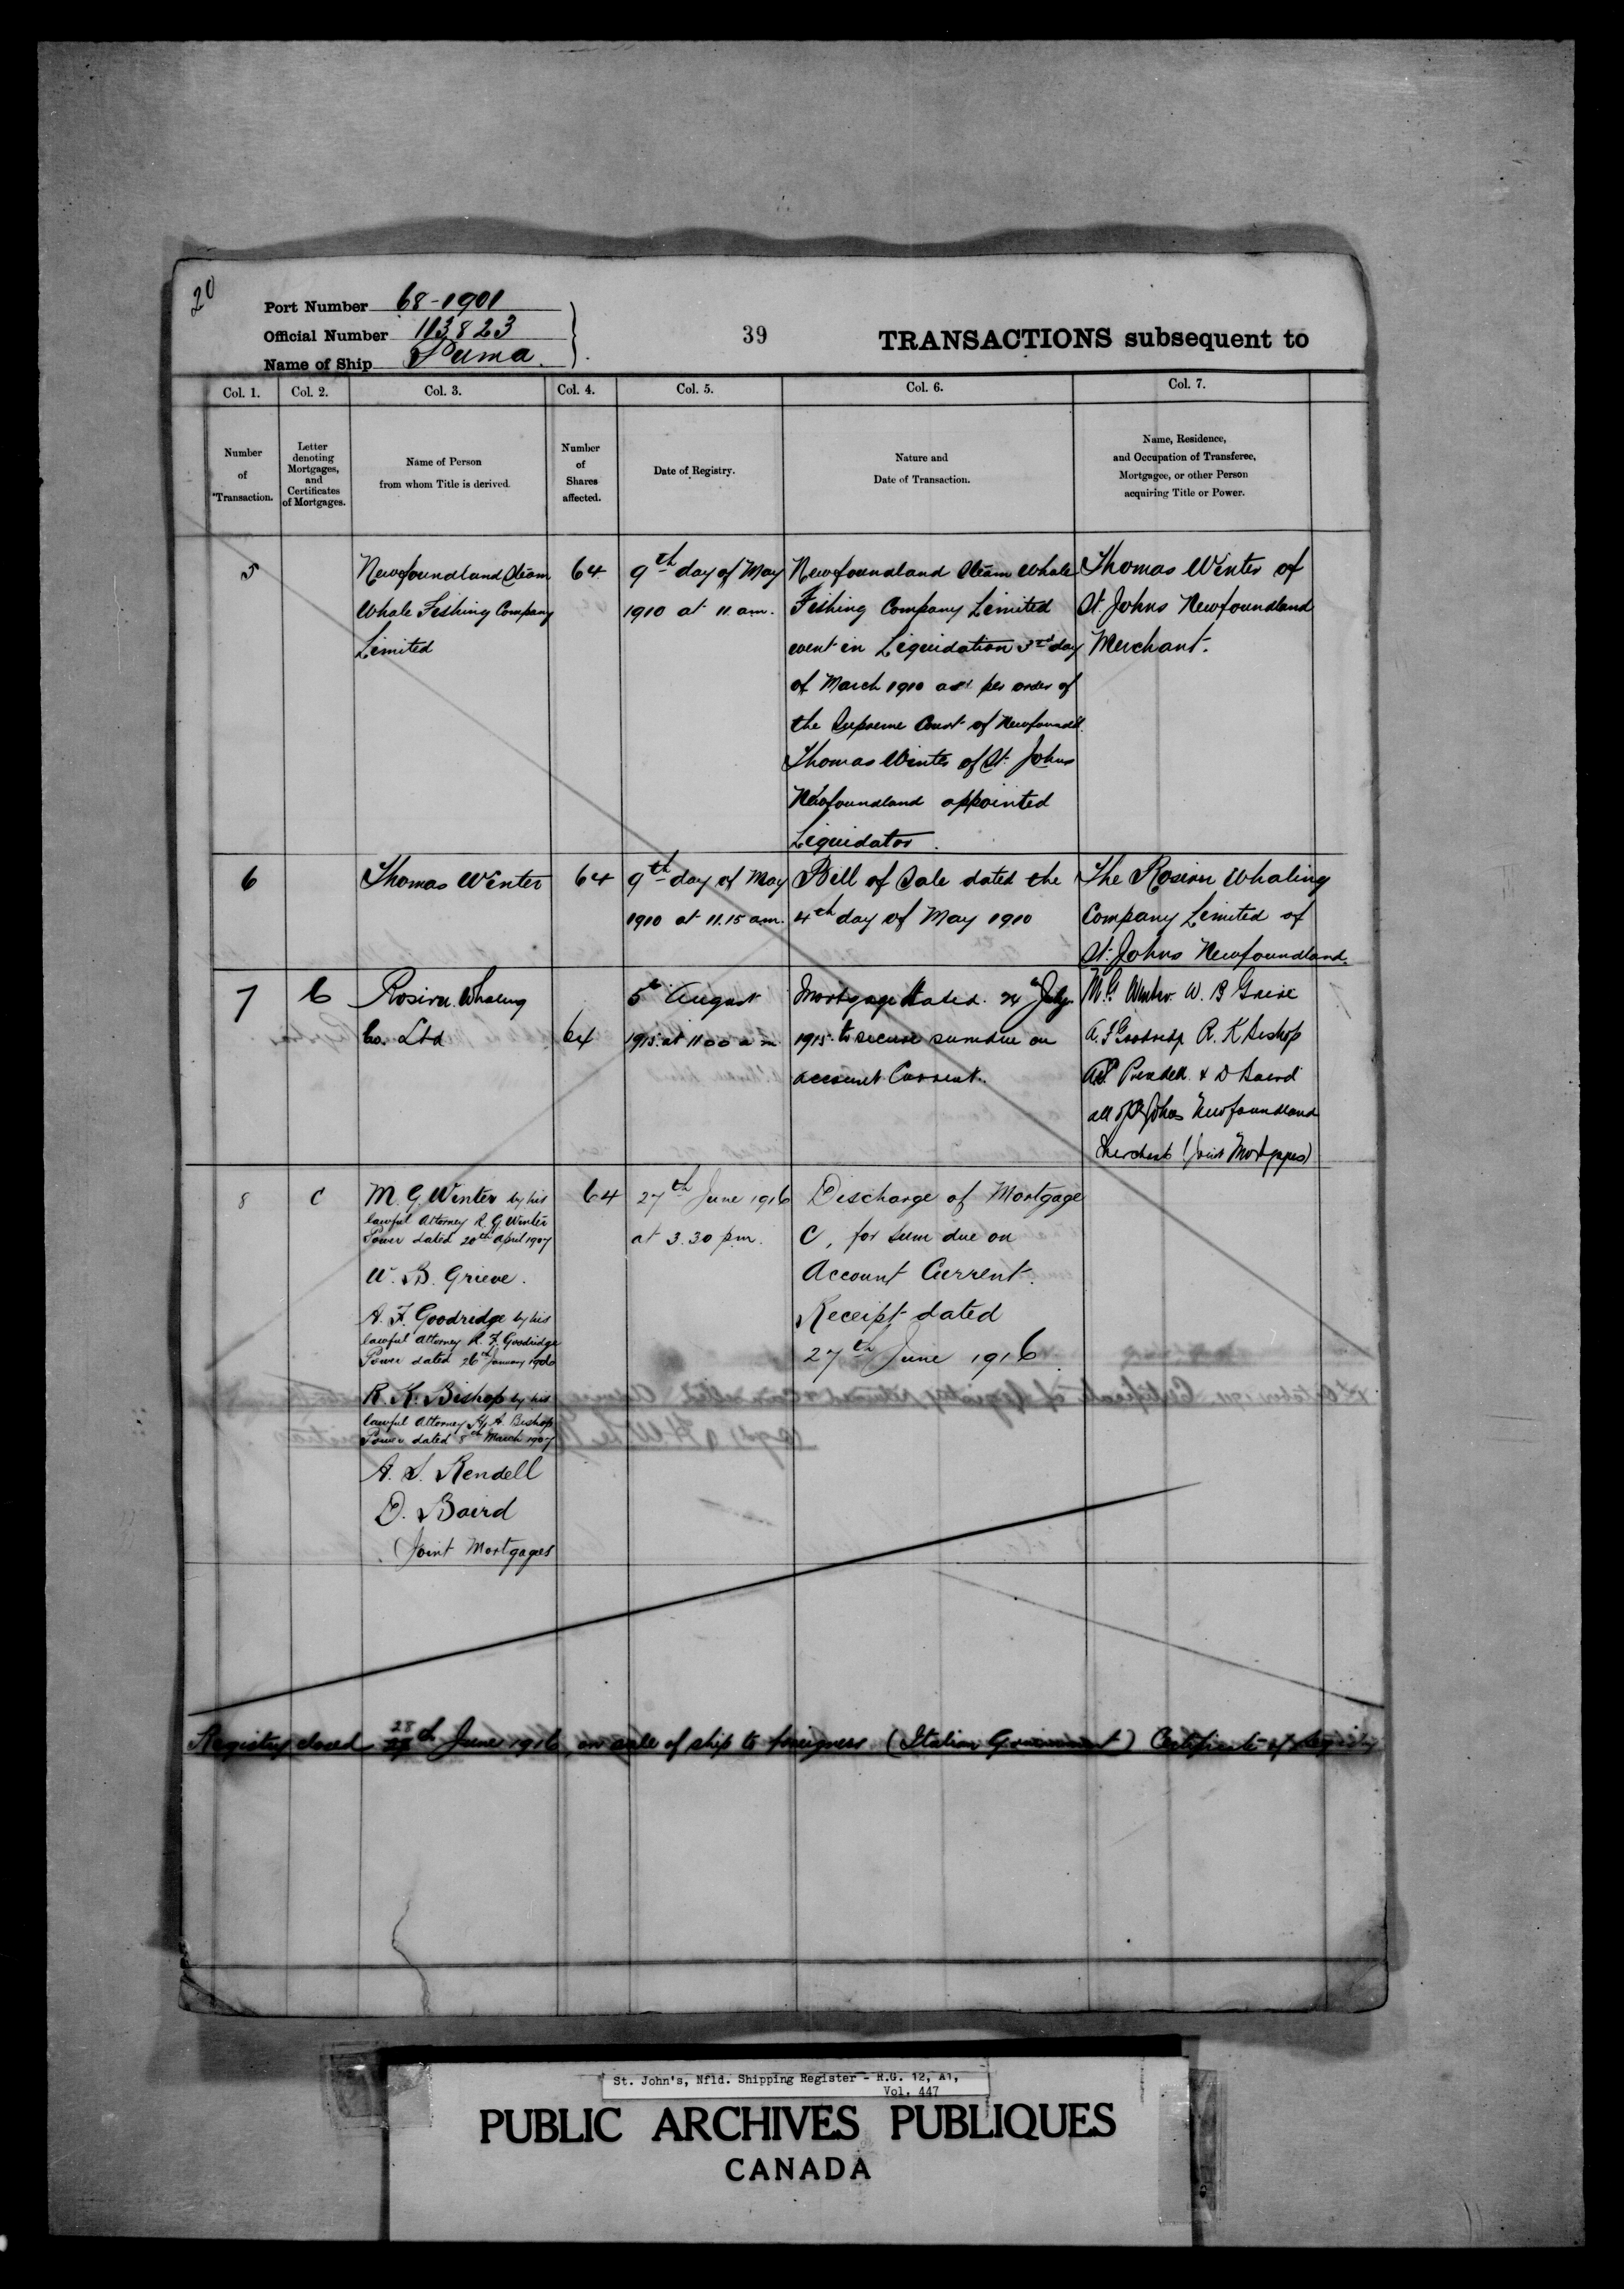 20
Port Number 68-1901
Official Number 113823
Name of Ship Puma.
39
TRANSACTIONS subsequent to
Col. 1.
Col. 2.
Col. 3.
Col. 4.
Col. 5.
Col. 6.
Col. 7.
Number
of
Transaction.
Letter
denoting
Mortgages,
and
Certificates
of Mortgages.
Name of Person
from whom Title is derived.
Number
of
Shares
affected.
Date of Registry.
Nature and
Date of Transaction.
Name, Residence,
and Occupation of Transferee,
Mortgagee, or other Person
acquiring Title or Power.
5
Newfoundland Steam
Whale Fishing Company
Limited
64
9th day of May
1910 at 11 am.
Newfoundland Steam Whale
Fishing Company Limited
went in Liquidation day
of March 1910 as per order of
the Supreme Court of Newfoundd.
Thomas Winter of St. Johns
Newfoundland appointed
Liquidator.
Thomas Winter of
St. Johns Newfoundland
Merchant.
6
Thomas Winter
64
9th day of May
1910 at 11.15 am.
Bill of Sale dated the
4th day of May 1910
The Rosiru Whaling
Company Limited of
St. Johns Newfoundland.
7
C
Rosiru Whaling
Co. Ltd
64
5th August
1915 at 11 00 a m
Mortgage dated 24th July
1915 to secure sum due on
account Current.
M. G. Winter W. B Grieve
A. F Goodridge R. K Bishop
A S Rendell & D Baird
all of St Johns Newfoundland
Merchants (Joint Mortgagees)
8
C
M. G. Winter by his
lawful Attorney R. G. Winter
Power dated 20th April 1907
W. B. Grieve.
A. F. Goodridge by his
lawful Attorney R. F. Goodridge
Power dated 26th January 1906
R. K. Bishop by his
lawful Attorney H. A. Bishop
Power dated 8th March 1907
A. S. Rendell
D. Baird
Joint Mortgagees
64
27th June 1916
at 3.30 p.m.
Discharge of Mortgage
C, for sum due on
Account Current.
Receipt dated
27th June 1916.
28
Registry closed th June 1916, on sale of ship to foreigners (Italian Government) Certificate of Registry
St. John's, Nfld. Shipping Register - R.G. 12, A1,
Vol. 447
PUBLIC ARCHIVES PUBLIQUES
CANADA